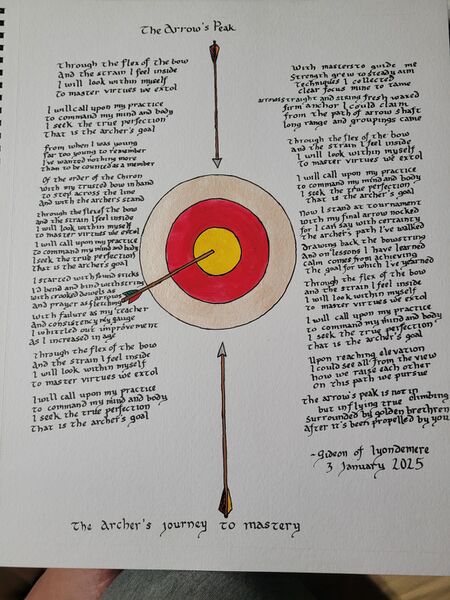 The Arrow's Peak
Through the flex of the bow
and the strain I feel inside
I will look within myself
to master virtues we extol
I will call upon my practice
to command my mind and body
I seek the true perfection
that is the archer's goal
From when I was young
far too young to remember
I've wanted nothing more
than to be counted as a member
Of the order of the Chiron
with my trusted bow in hand
to step across the line
and with the archers stand
Through the flex of the bow
and the strain I feel inside
I will look within myself
to master virtues we extol
I will call upon my practice
to command my mind and body
I seek the true perfection
that is the archer's goal
I started with found sticks
I'd bend and bind with string
with crooked dowels as arrows
and prayer as fletching
With failure as my teacher
and consistency my gauge
I whittled out improvement
as I increased in age
Through the flex of the bow
and the strain I feel inside
I will look within myself
to master virtues we extol
I will call upon my practice
to command my mind and body
I seek the true perfection
that is the archer's goal
With masters to guide me
strength grew to steady aim
techniques I collected
clear focus mine to tame
arrows straight and string fresh waxed
firm anchor I could claim
from the path of arrow shaft
long range and groupings came
Through the flex of the bow
and the strain I feel inside
I will look within myself
to master virtues we extol
I will call upon my practice
to command my mind and body
I seek the true perfection
that is the archer's goal
Now I stand at tournament
with my final arrow nocked
for I can say with certainty
the archer's path I've walked
Drawing back the bowstring
and on lessons I have learned
calm comes from achieving
the goal for which I've yearned
Through the flex of the bow
and the strain I feel inside
I will look within myself
to master virtues we extol
I will call upon my practice
to command my mind and body
I seek the true perfection
that is the archer's goal
Upon reaching elevation
I could see all from the view
how we raise each other
on this path we pursue
The arrow's peak is not in climbing
but in flying true
surrounded by golden brethren
after it's been propelled by you
~Gideon of Lyondemere
3 January 2025
The archer's journey to mastery